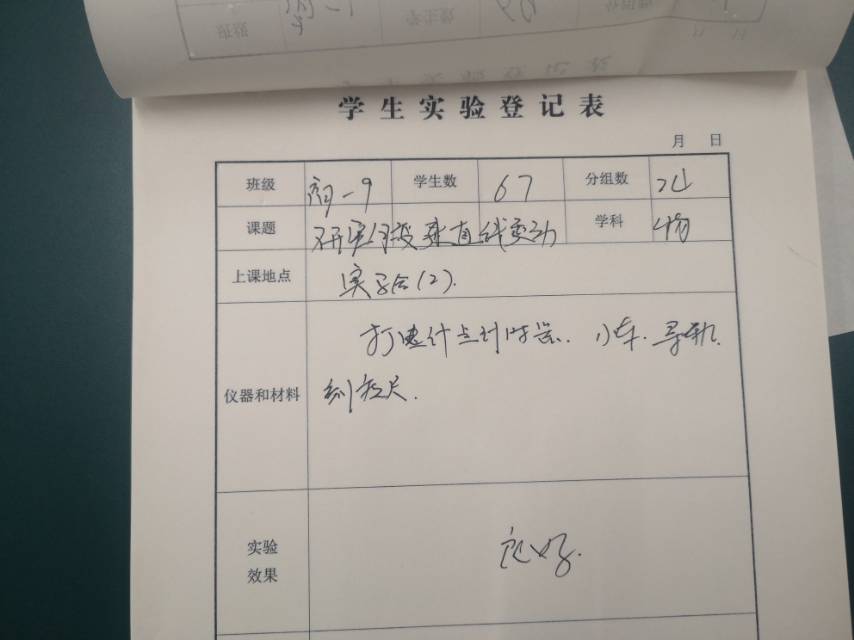 学生实验登记表
月 日
班级 高一9 学生数 67 分组数 24
课题 研究匀变速直线运动 学科 物
上课地点 实验室(2).
仪器和材料 打点计时器. 小车. 导轨.
刻度尺.
实验效果 良好.